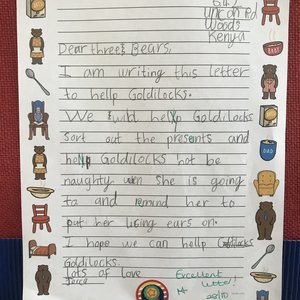 Union Rd
Woods
Kenya
Dear three Bears,
I am writing this letter
to hellp Goldilocks.
We will hellp Goldilocks
sort out the presents and
hellp Goldilocks not be
naughty wen She is going
to and remind her to
put her lising ears on.
I hope we can hellp
Goldilocks.
Lots of love
Excellent
letter!
DAD